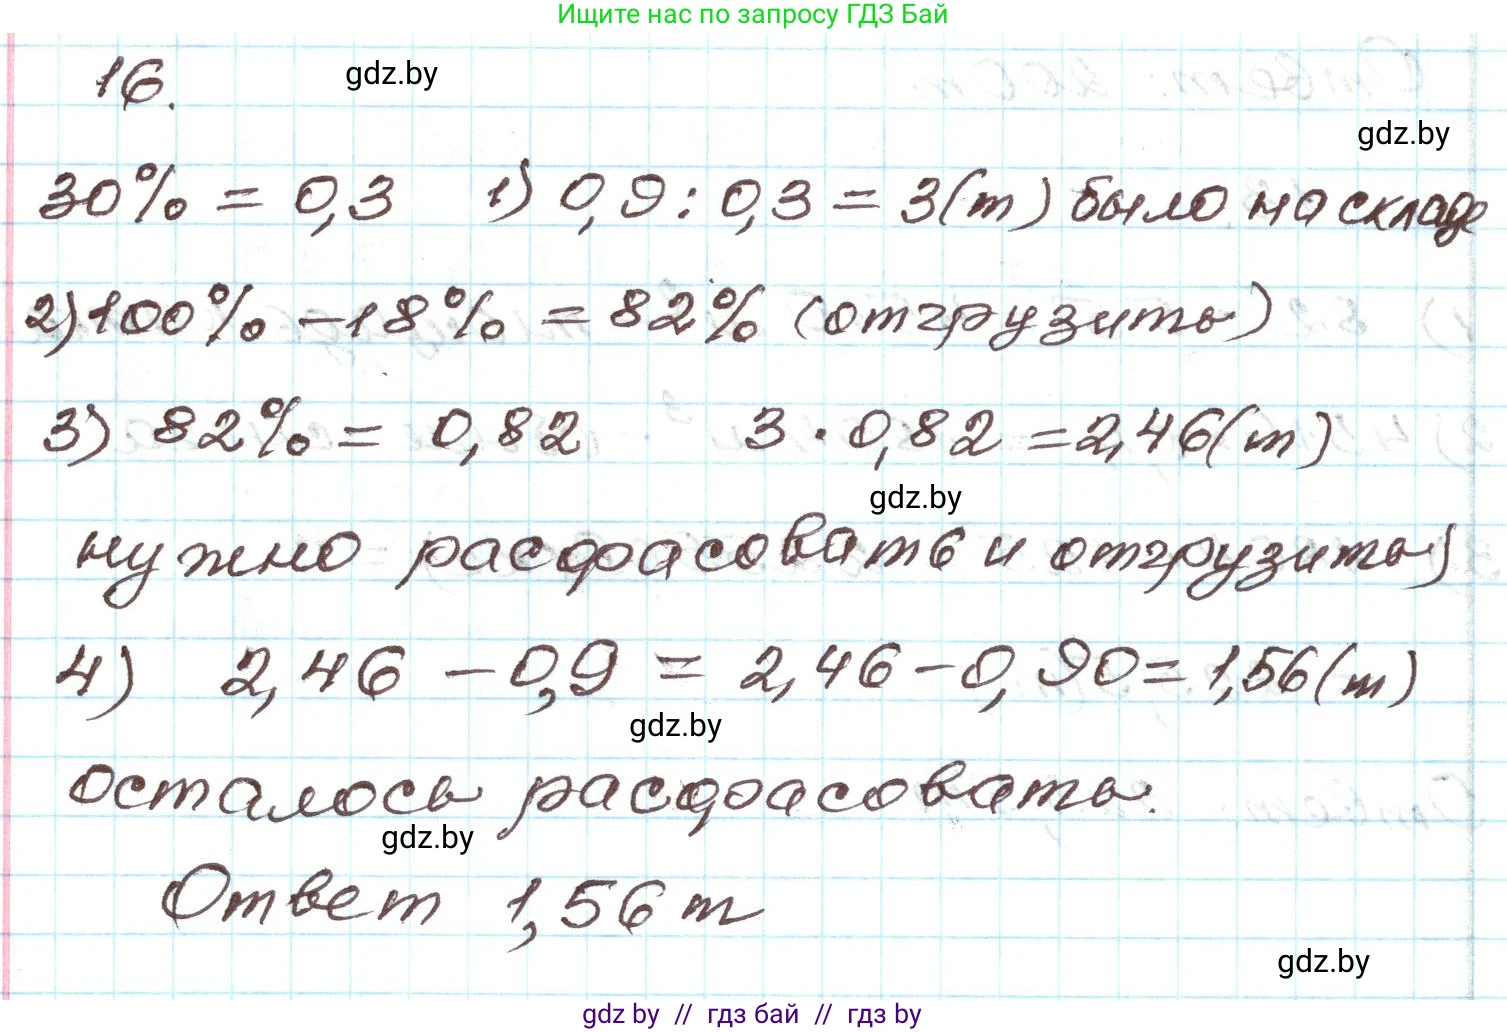 Ищите нас по запросу ГДЗ Бай
16.
gdz.by
gdz.by
30% = 0,3 1) 0,9 : 0,3 = 3(т) было на складе
2) 100% - 18% = 82% (отгрузить)
3) 82% = 0,82 3 · 0,82 = 2,46(т)
gdz.by
нужно расфасовать и отгрузить)
4) 2,46 - 0,9 = 2,46 - 0,90 = 1,56(т)
gdz.by
осталось расфасовать.
gdz.by
Ответ 1,56 т
gdz.by
gdz by // гдз бай // гдз by